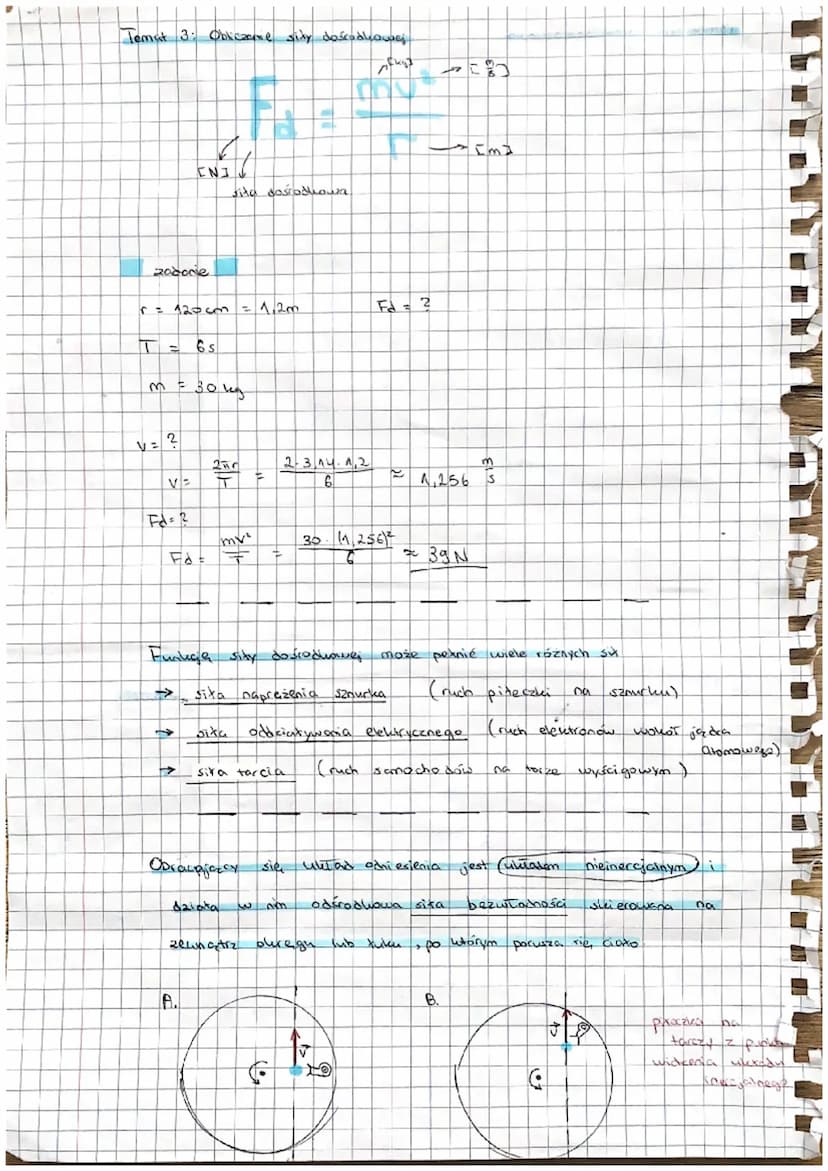 Temat 3: Obliczanie siły dośrodkowej
[kg]
→ [m/s]
Fd = mv²/r
→ [m]
[N]
siła dośrodkowa
zadanie
r = 120 cm = 1,2m Fd = ?
T = 6s
m = 30 kg
v = ?
v = 2πr/T = 2·3,14·1,2/6 ≈ 1,256 m/s
Fd = ?
Fd = mv²/T = 30·(1,256)²/6 ≈ 39N
Funkcję siły dośrodkowej może pełnić wiele różnych sił
→ siła naprężenia sznurka (ruch piłeczki na sznurku)
→ siła oddziaływania elektrycznego (ruch elektronów wokół jądra
atomowego)
→ siła tarcia (ruch samochodów na torze wyścigowym)
Obracający się układ odniesienia jest układem nieinercjalnym i
działa w nim odśrodkowa siła bezwładności skierowana na
zewnątrz okręgu lub łuku, po którym porusza się ciało
A. B.
v
v
na
tarczy z
widzenia układu
inercjalnego